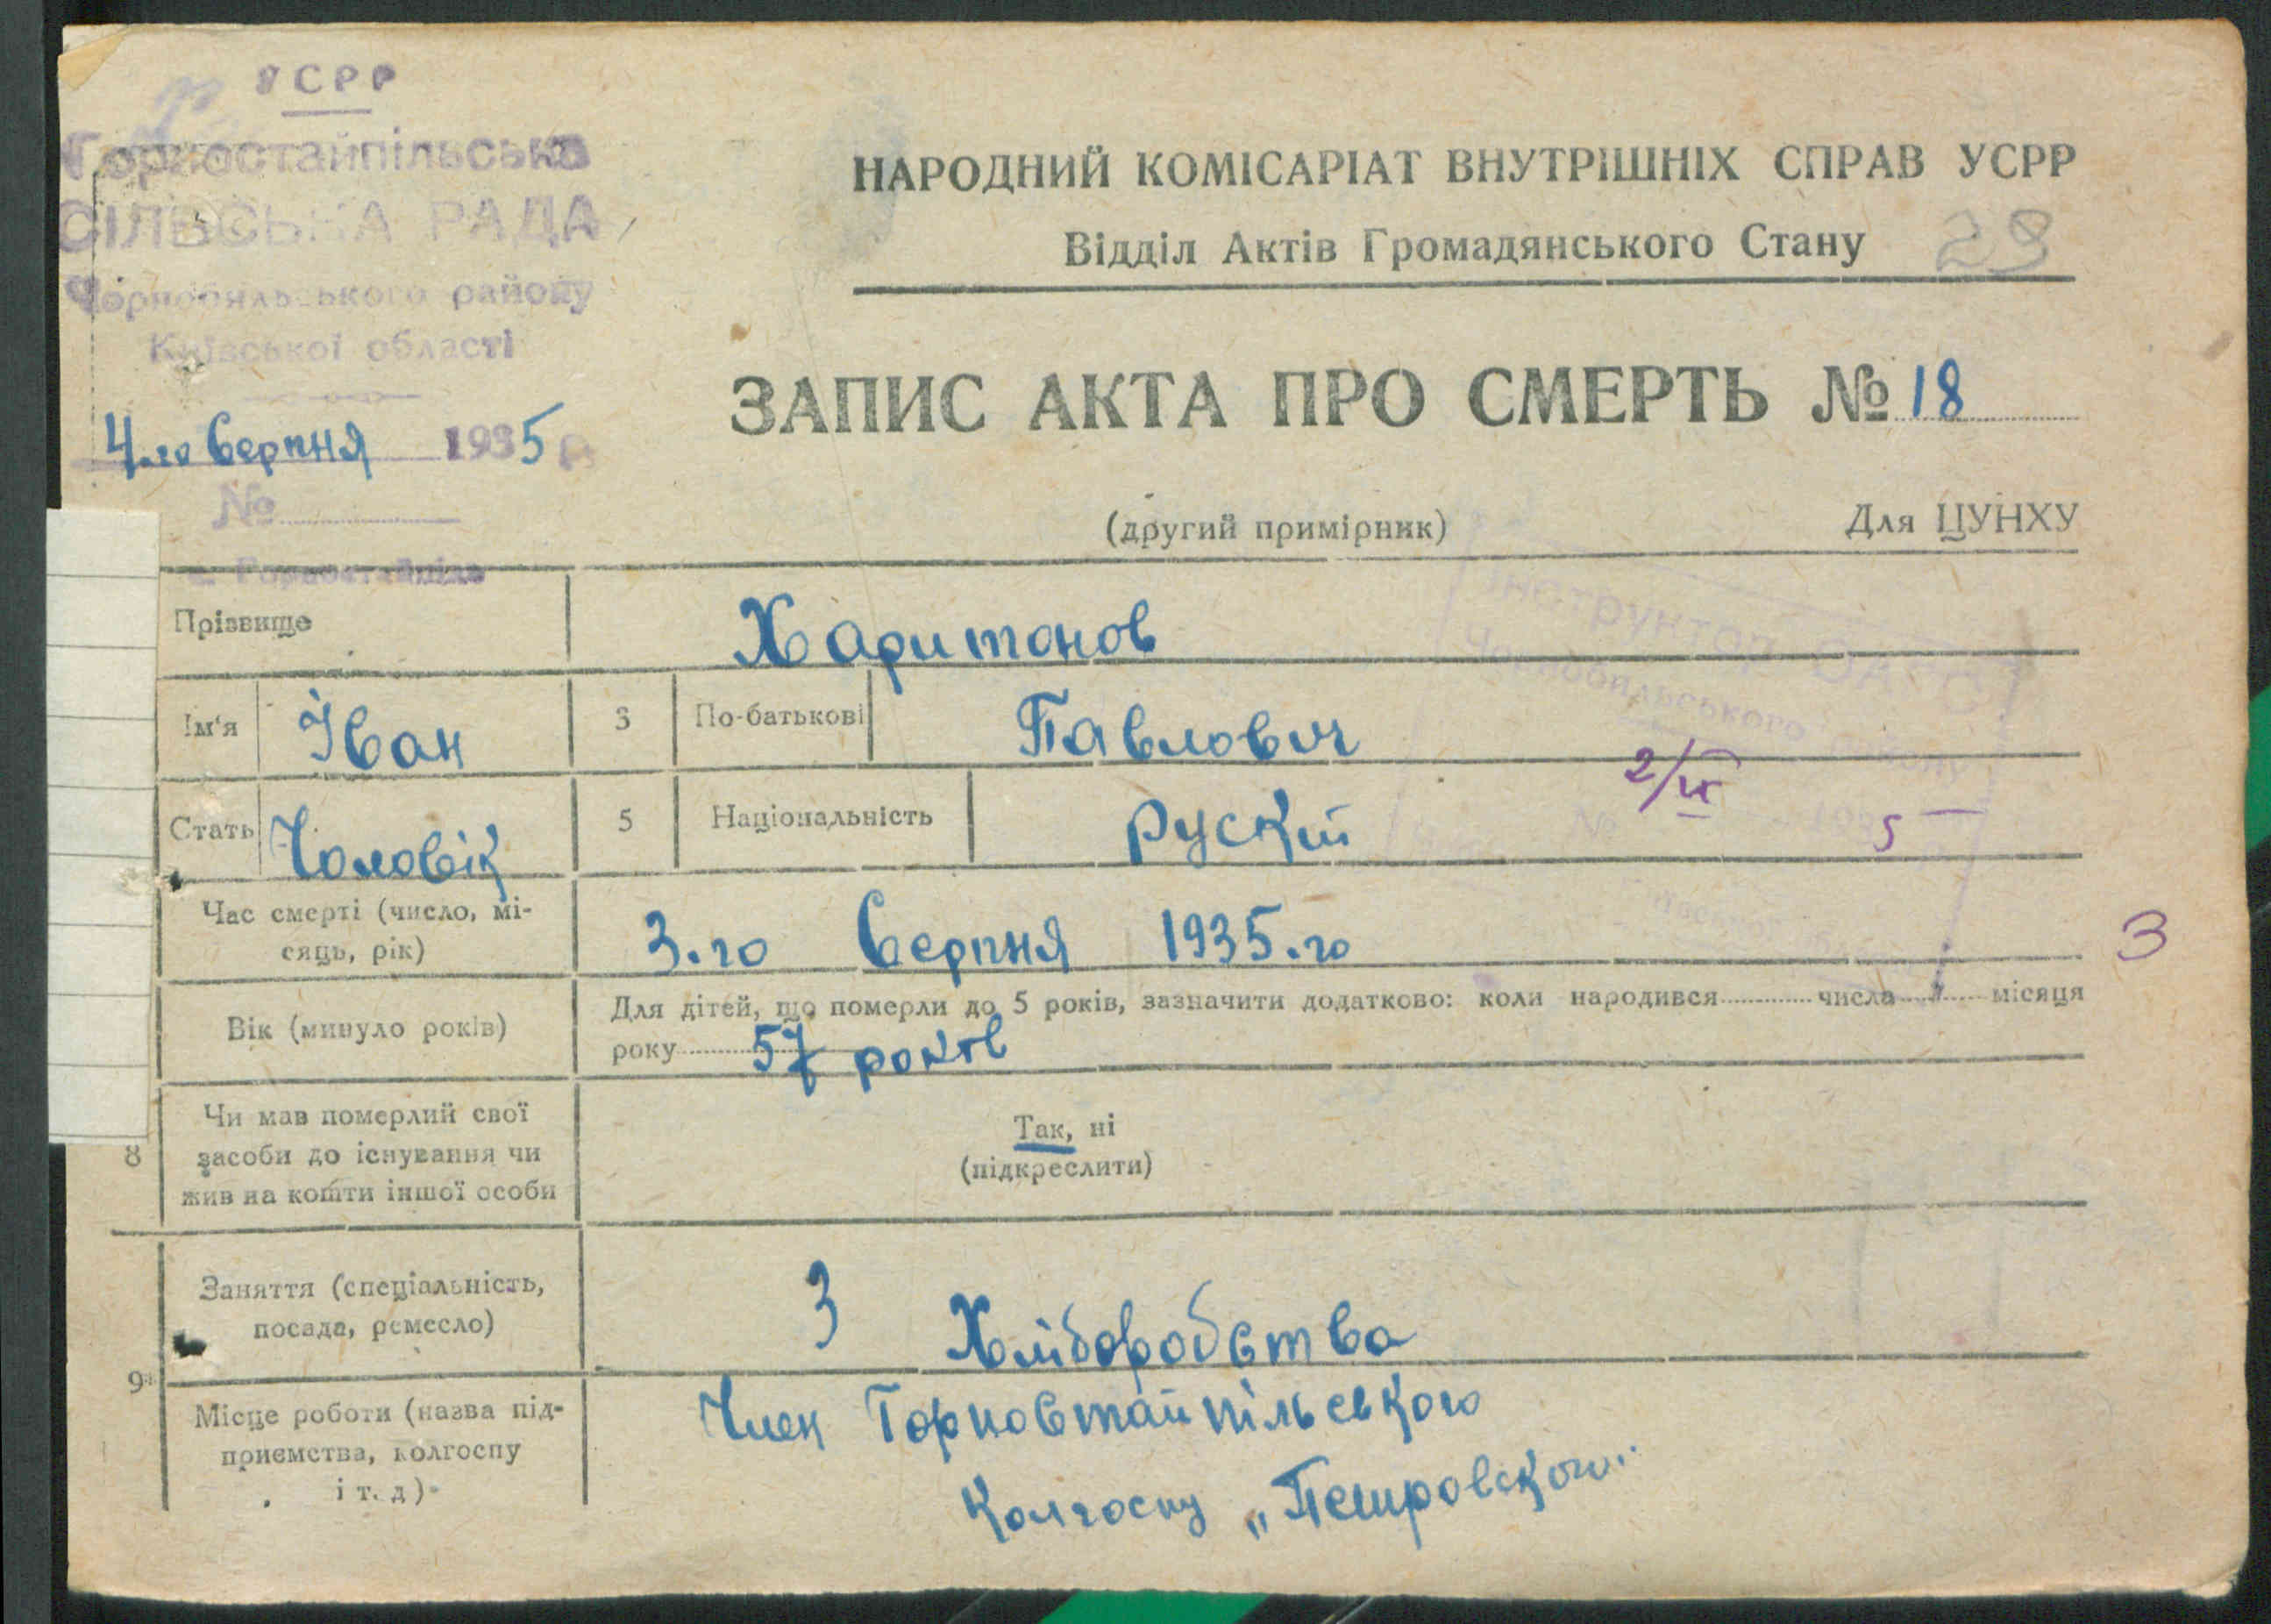 УСРР
Горностайпільська
СІЛЬСЬКА РАДА
Чорнобильського району
Київської області
4.го серпня 1935 р.
№
с. Горностайпіль
НАРОДНИЙ КОМІСАРІАТ ВНУТРІШНІХ СПРАВ УСРР
Відділ Актів Громадянського Стану 29
ЗАПИС АКТА ПРО СМЕРТЬ № 18
(другий примірник) Для ЦУНХУ
Прізвище Харитонов
Ім'я Іван 3 По-батькові Павлович
Стать Чоловік 5 Національність руский
Інструктор ЗАГС
Чорнобильського району
2/IX
№ 193 5
Час смерті (число, мі-
сяць, рік) 3.го серпня 1935.го 3
Вік (минуло років) Для дітей, що померли до 5 років, зазначити додатково: коли народився числа місяця
року 57 років
8 Чи мав померлий свої
засоби до існування чи
жив на кошти іншої особи
Так, ні
(підкреслити)
9 Заняття (спеціальність,
посада, ремесло) З Хліборобства
Місце роботи (назва під-
приємства, колгоспу
і т. д)
Член Горностайпільського
Колгоспу „Петровского"